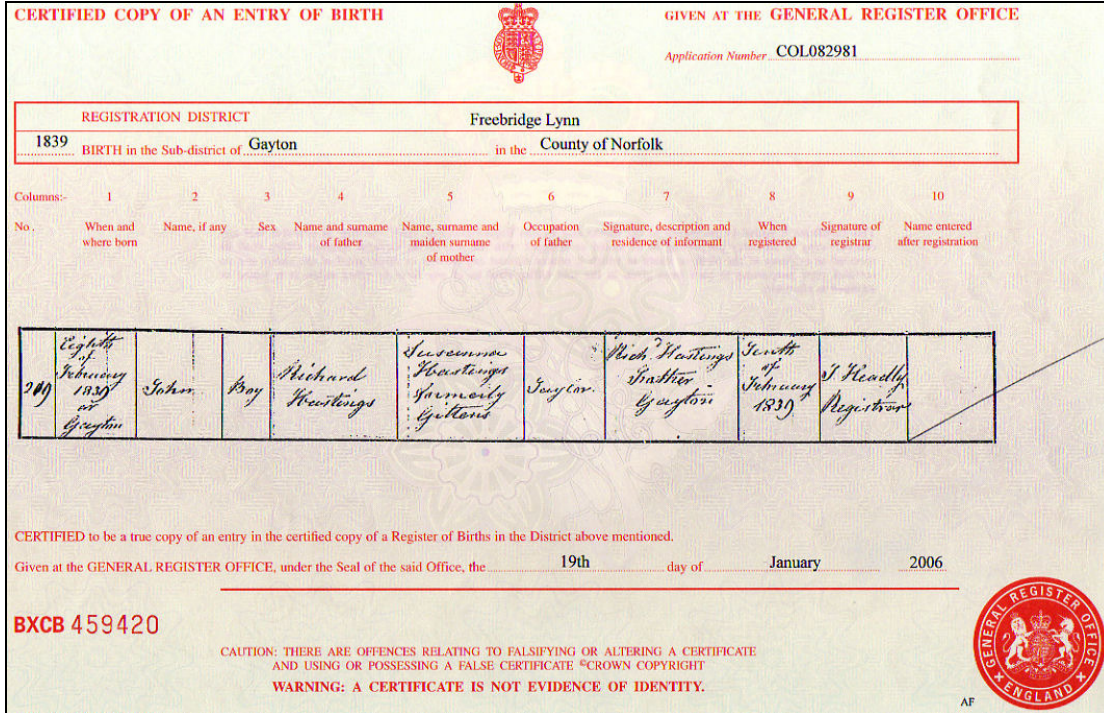 CERTIFIED COPY OF AN ENTRY OF BIRTH
GIVEN AT THE GENERAL REGISTER OFFICE
Application Number COL082981
REGISTRATION DISTRICT Freebridge Lynn
1839 BIRTH in the Sub-district of Gayton in the County of Norfolk
Columns:- 1 2 3 4 5 6 7 8 9 10
No. When and where born Name, if any Sex Name and surname of father Name, surname and maiden surname of mother Occupation of father Signature, description and residence of informant When registered Signature of registrar Name entered after registration
209
Eighth
of
February
1839
at
Gayton
John
Boy
Richard
Hastings
Susanna
Hastings
formerly
Gittens
Taylor
Richd Hastings
Father
Gayton
Tenth
of
February
1839
J. Headly
Registrar
CERTIFIED to be a true copy of an entry in the certified copy of a Register of Births in the District above mentioned.
Given at the GENERAL REGISTER OFFICE, under the Seal of the said Office, the 19th day of January 2006
BXCB 459420
CAUTION: THERE ARE OFFENCES RELATING TO FALSIFYING OR ALTERING A CERTIFICATE
AND USING OR POSSESSING A FALSE CERTIFICATE ©CROWN COPYRIGHT
WARNING: A CERTIFICATE IS NOT EVIDENCE OF IDENTITY.
GENERAL REGISTER OFFICE
ENGLAND
AF